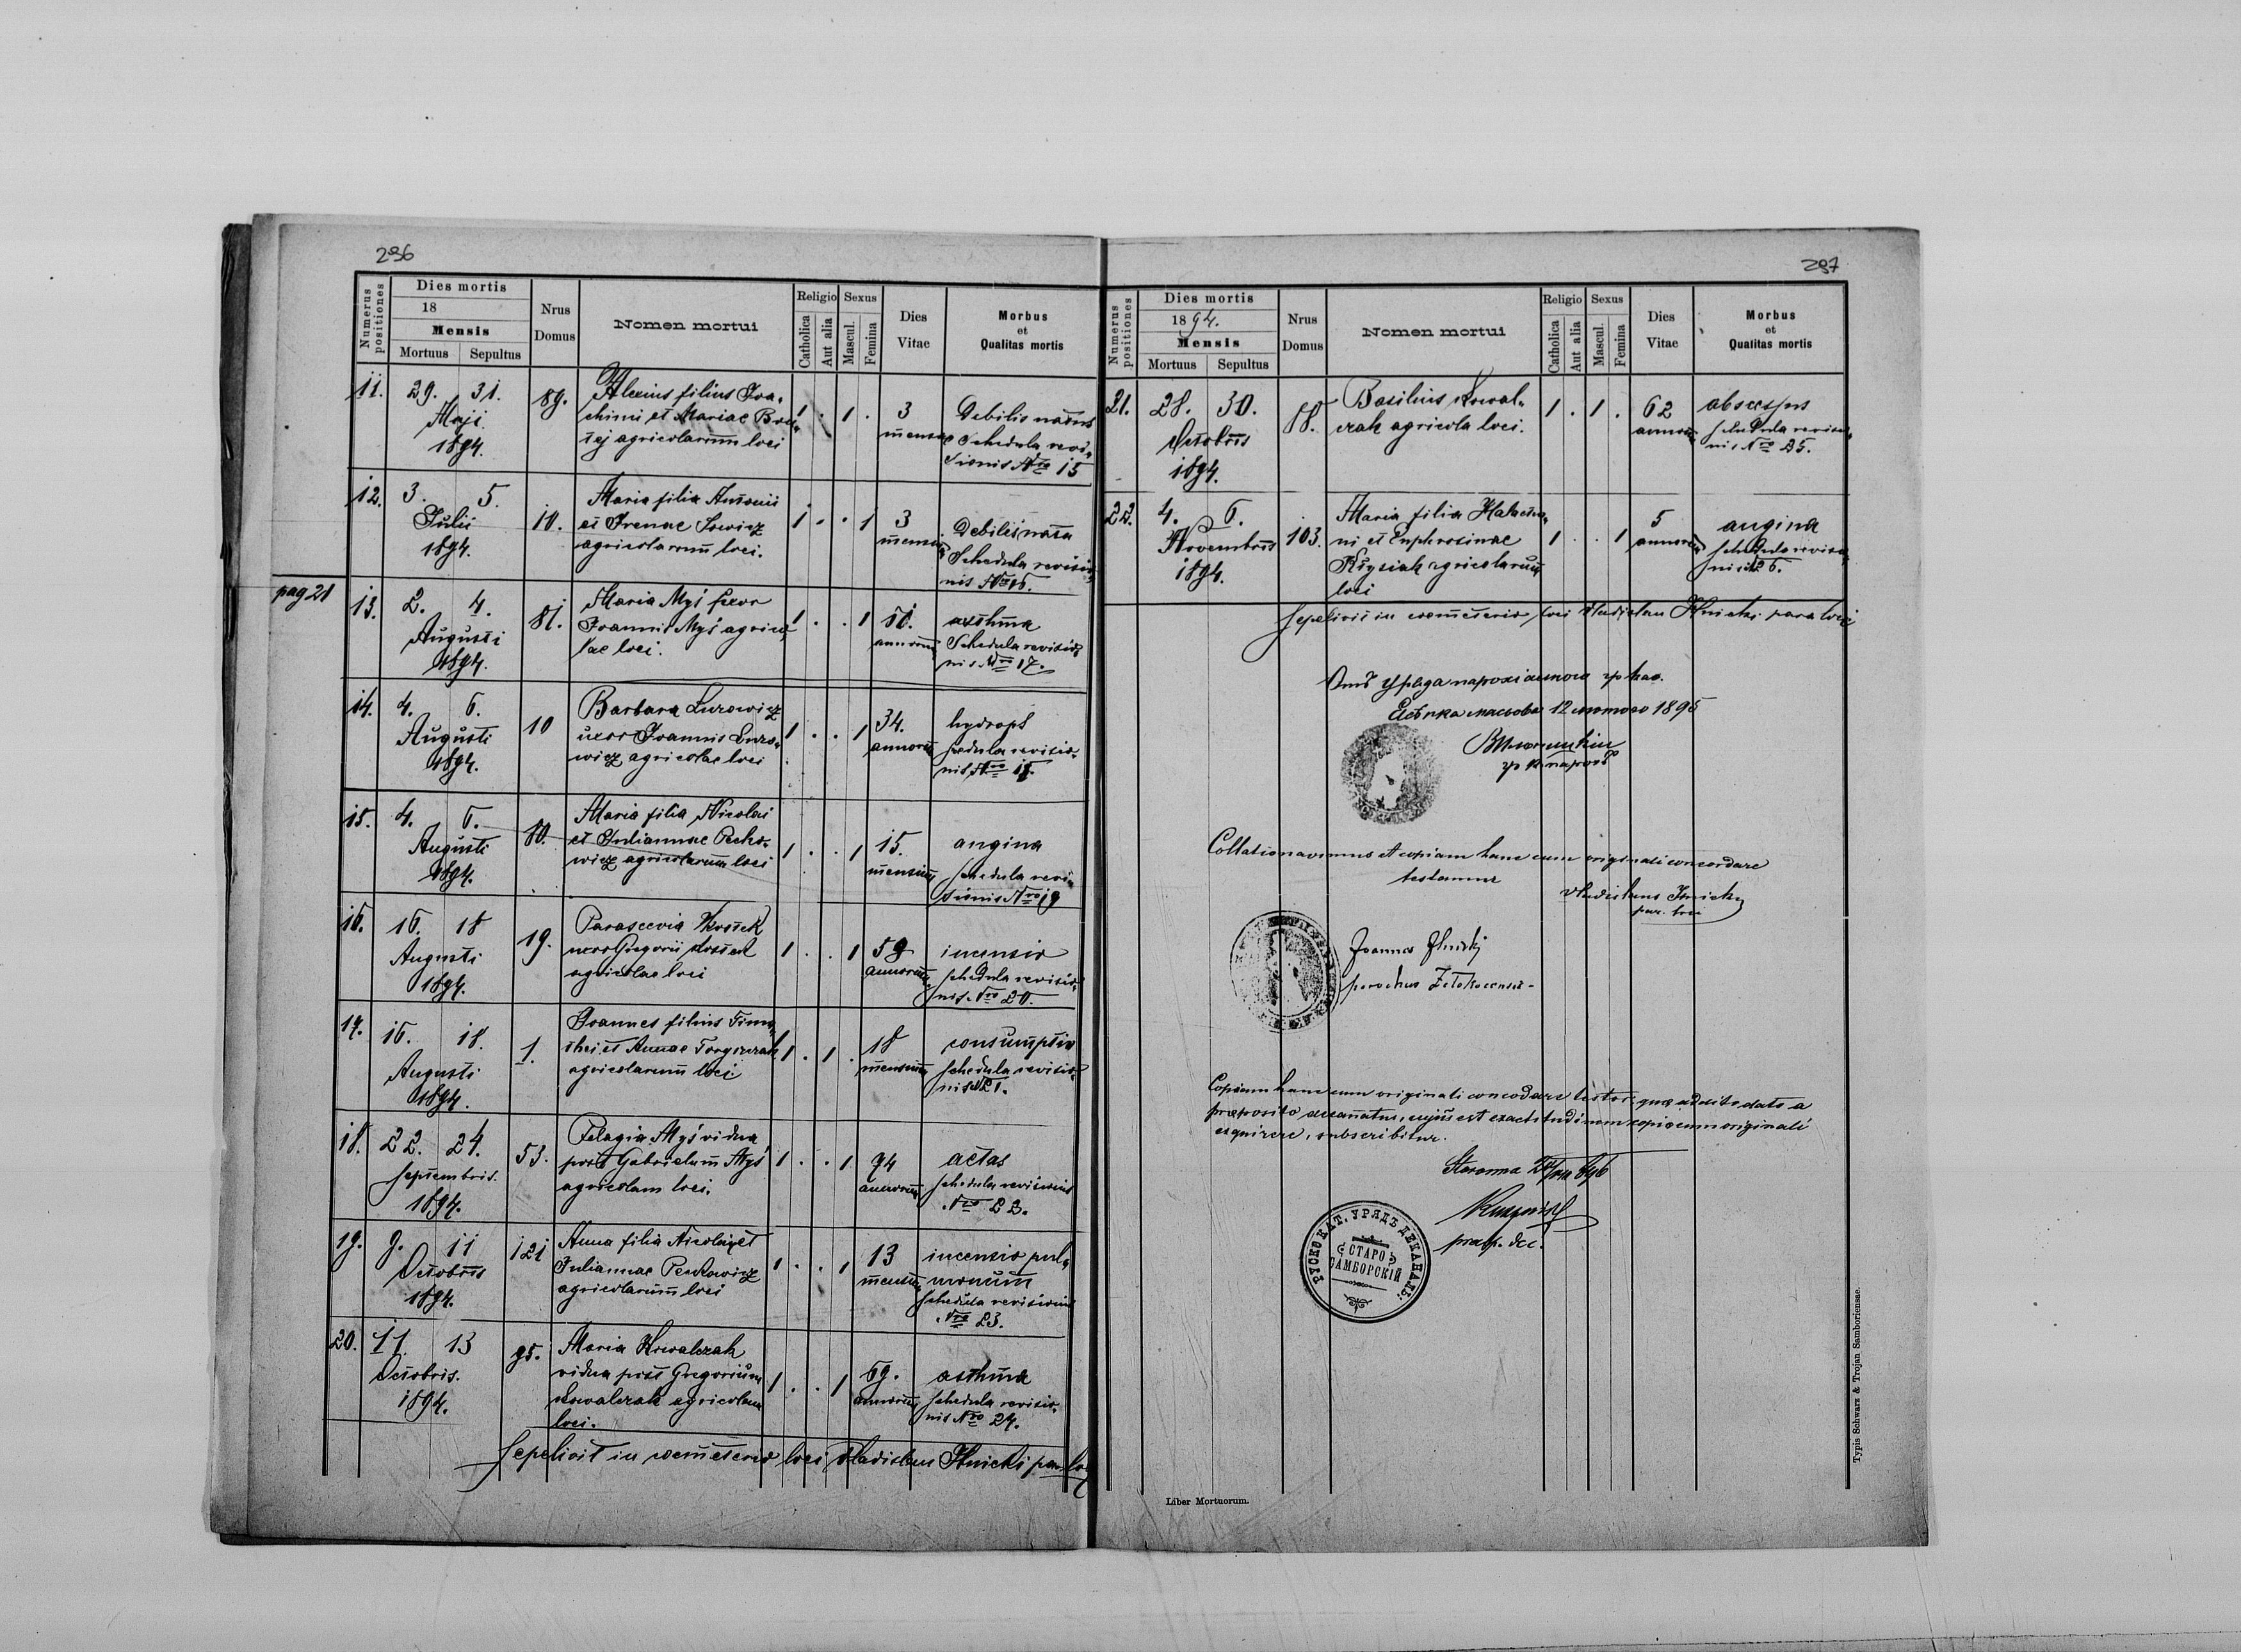 296
Numerus positiones
Dies mortis
18
Mensis
Mortuus Sepultus
Nrus Domus
Nomen mortui
Religio
Catholica
Aut alia
Sexus
Mascul.
Femina
Dies Vitae
Morbus et Qualitas mortis
11. 29. 31. 89. Alexius filius Joa-
chimi et Mariae
agricolarum loci
Maji
1894.
1 . 1 . 3
menses
Debilis natus
Schedula revi-
sionis Nro 15
12. 3. 5. 10. Maria filia Antonii
et Irenae
agricolarum loci.
Julii
1894.
1 . . 1 3
menses
Debilis nata
Schedula revisio-
nis Nro 16.
pag 21
13. 2. 4. 81. Maria Myś uxor
Joannis Myś agrico-
lae loci.
Augusti
1894.
1 . . 1
annorum
asthma
Schedula revisio-
nis Nro 17.
14. 4. 6. 10 Barbara Lurowicz
uxor Joannis Luro-
wicz agricolae loci
Augusti
1894.
1 . . 1 34.
annorum
hydrops
schedula revisio-
nis Nro 18.
15. 4. 6. 80. Maria filia Nicolai
et Juliannae
agricolarum loci
Augusti
1894.
1 . . 1 15.
mensium
angina
schedula revi-
sionis Nro 19
16. 16. 18 19. Parascevia Kostek
uxor Gregorii Kostek
agricolae loci
Augusti
1894.
1 . . 1 59
annorum
incensio
schedula revisio-
nis Nro 20.
17. 16. 18. 1. Joannes filius Timo-
thei et Annae
agricolarum loci
Augusti
1894.
1 . 1 . 18
mensium
consumptio
schedula revisio-
nis N21.
18. 22. 24. 53. Pelagia Myś vidua
post Gabrielum Myś
agricolam loci.
Septembris.
1894.
1 . . 1 94
annorum
aetas
schedula revisionis
Nro 22.
19. 9. 11 121 Anna filia Nicolai et
Juliannae
agricolarum loci
Octobris
1894.
1 . . 1 13
mensium
incensio pul-
monum
schedula revisionis
Nro 23.
20. 11. 13 95. Maria Kowalczak
vidua post Gregorium
Kowalczak agricolam
loci.
Octobris.
1894.
1 . . 1 69.
annorum
asthma
schedula revisio-
nis Nro 24.
Sepelivit in coemeterio loci Vladislaus Ilnicki par. loci
297
Numerus positiones
Dies mortis
1894.
Mensis
Mortuus Sepultus
Nrus Domus
Nomen mortui
Religio
Catholica
Aut alia
Sexus
Mascul.
Femina
Dies Vitae
Morbus et Qualitas mortis
21. 28. 30. 88. Basilius Kowal-
czak agricola loci.
Octobris
1894.
1 . 1 . 62
annorum
abscessus
schedula revisio-
nis Nro 25.
22. 4. 6. 103. Maria filia
et Euphrosinae
agricolarum
loci
Novembris
1894.
1 . . 1 5
annorum
angina
schedula revisio-
nis 26.
Sepelivit in coemeterio loci Vladislaus Ilnicki par. loci
12 лютого 1895
Collationavimus et copiam hanc cum originali concordare
testamur
Vladislaus Ilnicki
par. loci
Joannes Ilnicki
parochus
Copiam hanc cum originali concordare testor, quae
praeposito decanatus, cujus est exactitudinem copiae cum originali
exquirere, subscribitur.
РУСКО КАТ. УРЯДЪ ДЕКАНАЛЬ.
СТАРО
САМБОРСКІЙ
Liber Mortuorum.
Typis Schwarz & Trojan Samboriensae.